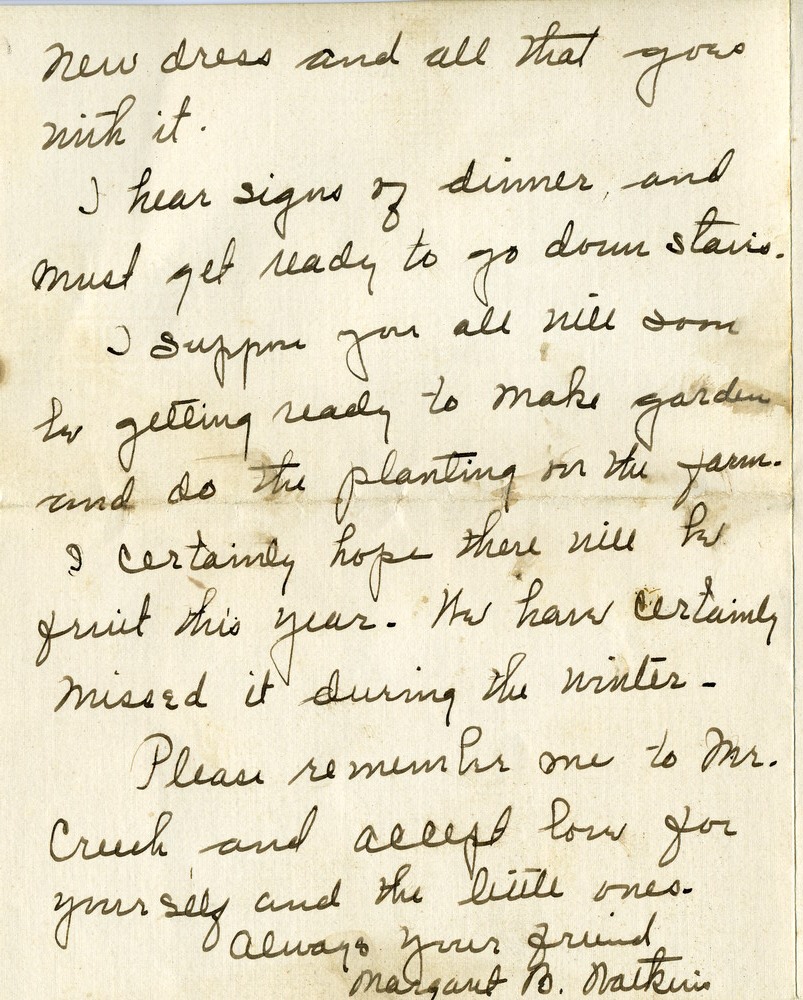 new dress and all that goes
with it.
I hear signs of dinner, and
must get ready to go down stairs.
I suppose you all will soon
be getting ready to make garden
and do the planting on the farm.
I certainly hope there will be
fruit this year. We have certainly
missed it during the winter.
Please remember me to Mr.
Creech and accept love for
yourself and the little ones.
Always your friend
Margaret B. Watkins